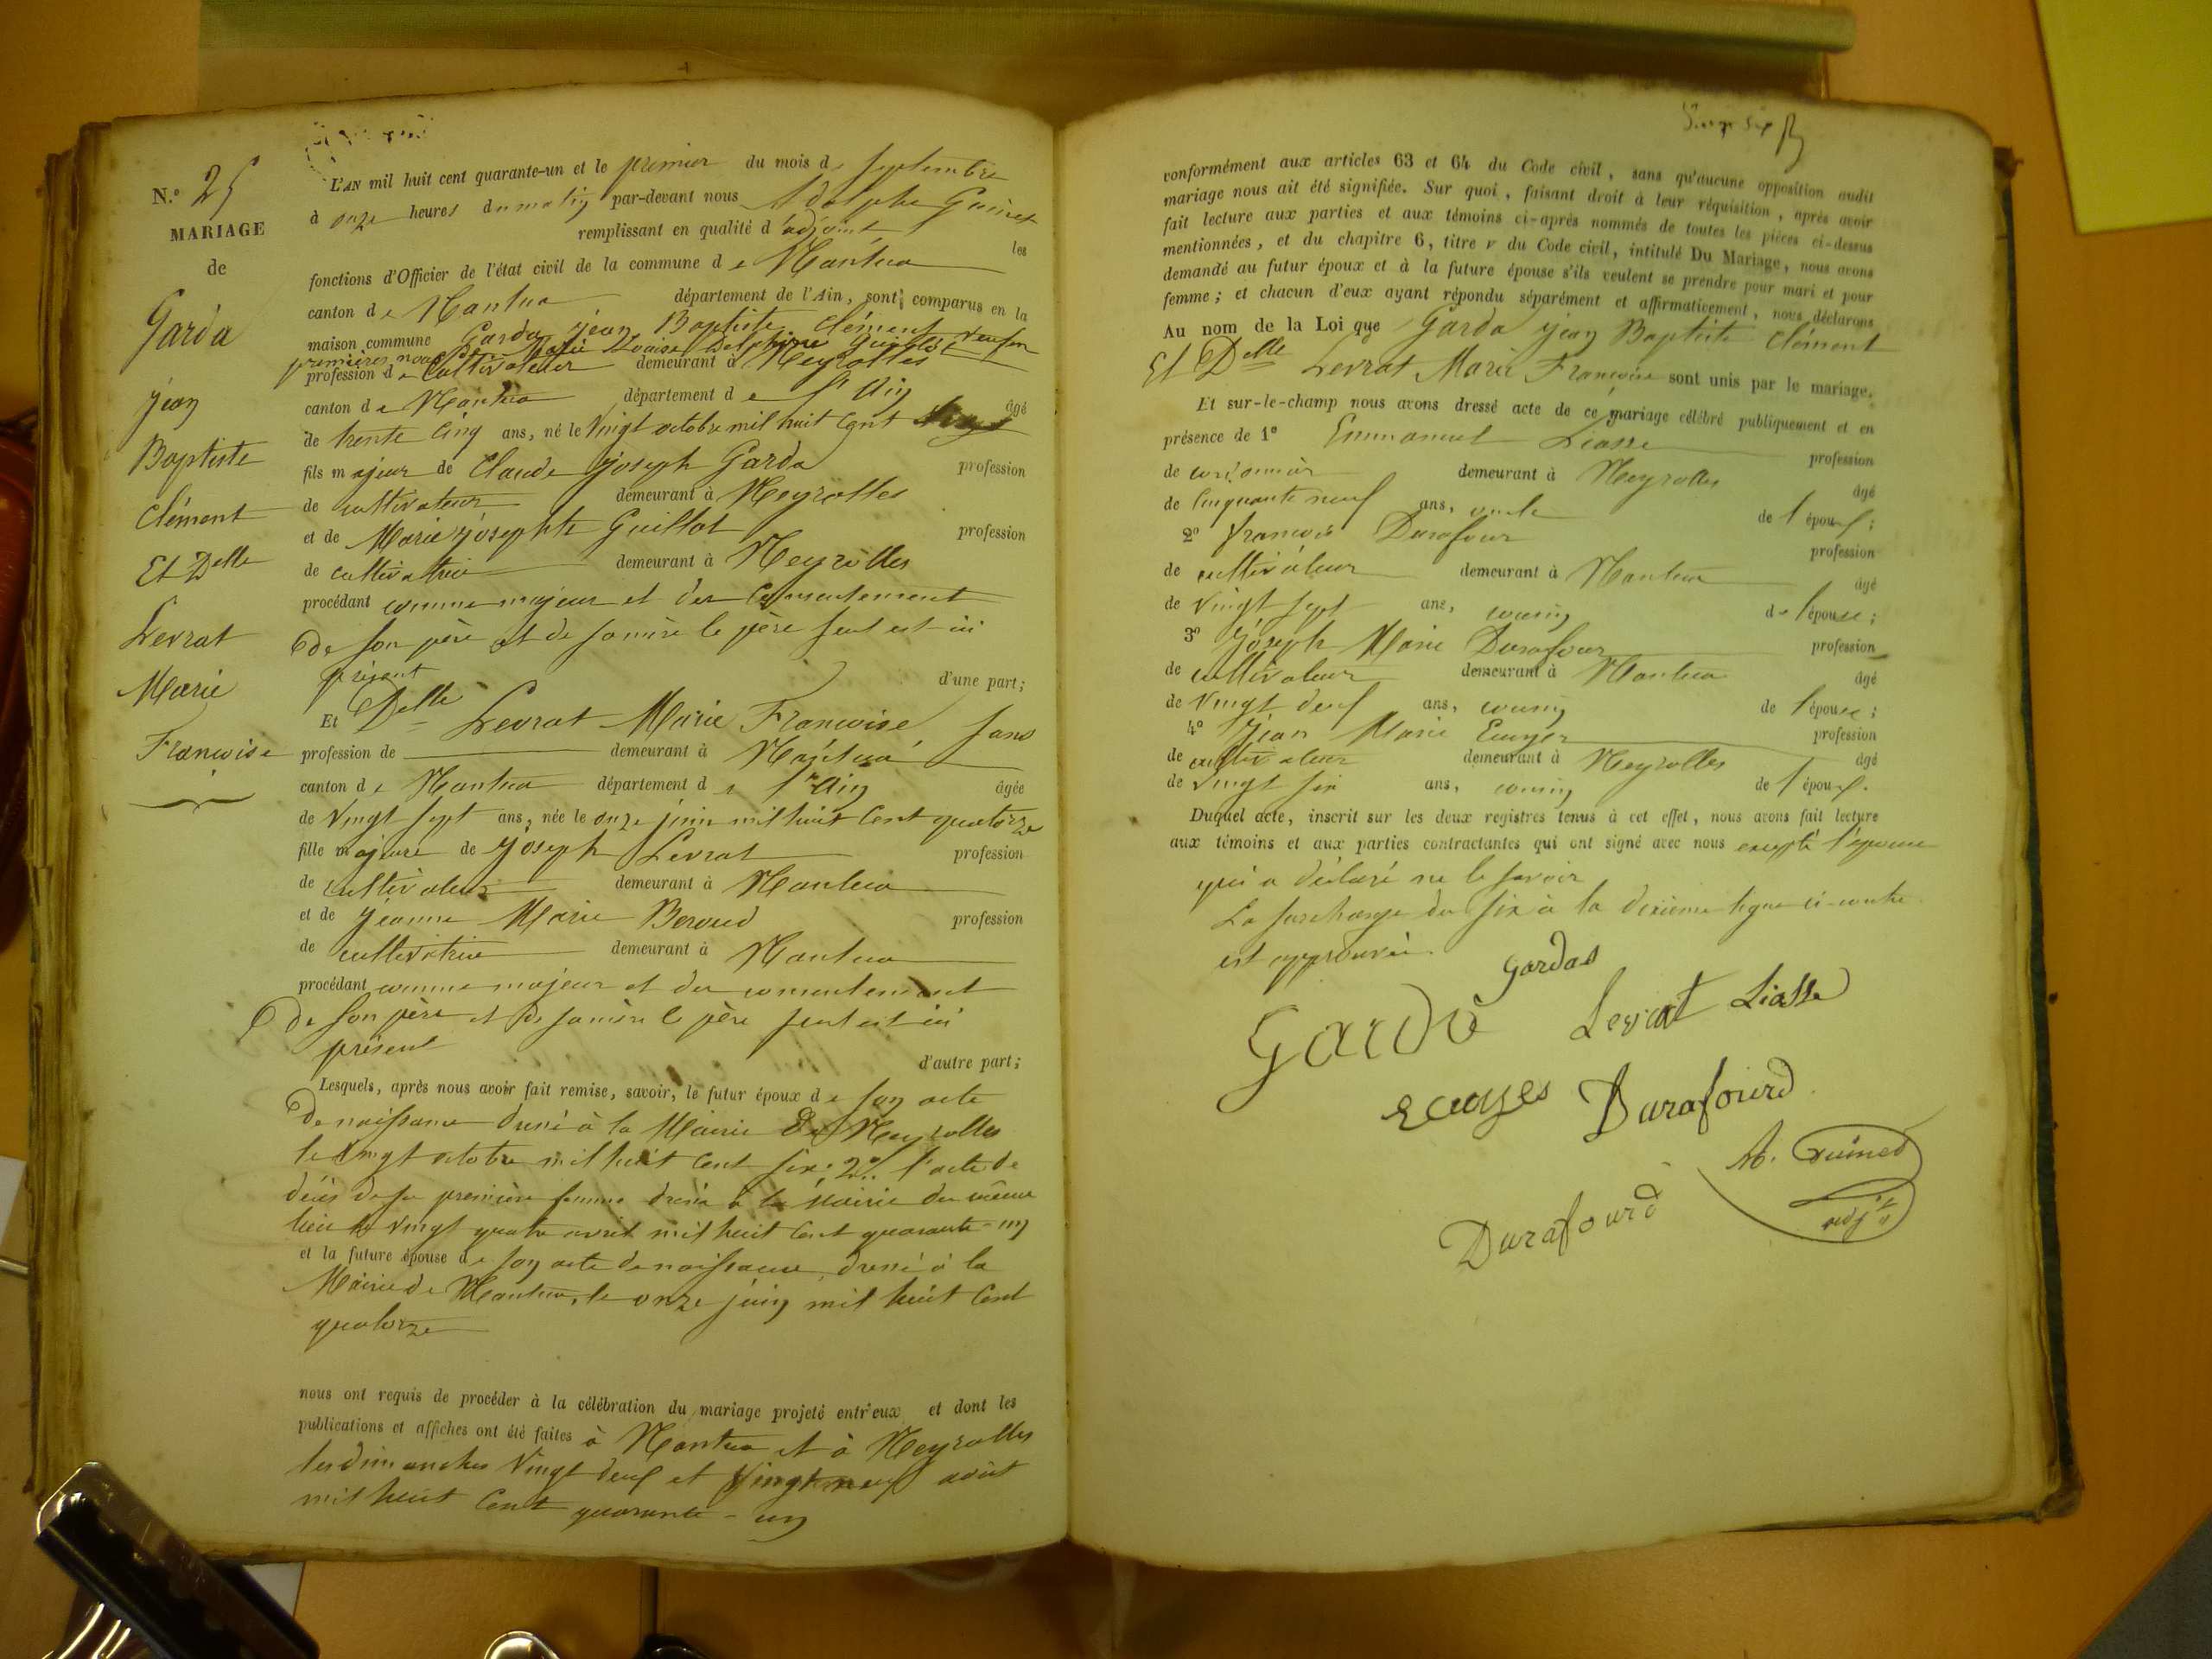 N.º 25
MARIAGE
de
Garda
jean
Baptiste
Clément
Et Delle
Levrat
Marie
Francoise
L'AN mil huit cent quarante-un et le premier du mois de septembre
à onze heures du matin par-devant nous Adolphe Guinet
remplissant en qualité d'adjoint les
fonctions d'Officier de l'état civil de la commune de Nantua
canton de Nantua département de l'Ain, sont comparus en la
maison commune Garda jean Baptiste Clément veuf en
premières noces Louise Delphine
profession de Cultivateur demeurant à Neyrolles
canton de Nantua département de l'Ain âgé
de trente Cinq ans, né le Vingt octobre mil huit Cent
fils majeur de Claude joseph Garda profession
de cultivateur demeurant à Neyrolles
et de Marie josephte Guillot profession
de cultivatrice demeurant à Neyrolles
procédant comme majeur et du Consentement
de son père et de sa mère le père seul est ici
présent d'une part;
Et Delle Levrat Marie Francoise, sans
profession de demeurant à Nantua
canton de Nantua département de l'Ain âgée
de Vingt sept ans, née le onze juin mil huit Cent quatorze
fille majeure de joseph Levrat profession
de cultivateur demeurant à Nantua
et de jeanne Marie Beroud profession
de cultivatrice demeurant à Nantua
procédant comme majeur et du consentement
de son père et de sa mère le père seul est ici
présent d'autre part;
Lesquels, après nous avoir fait remise, savoir, le futur époux de son acte
De naissance dressé à la Mairie De Neyrolles
le vingt octobre mil huit Cent six; 2º. l'acte de
décès de sa première femme dressé à la Mairie du même
lieu le vingt quatre avril mil huit Cent quarante-un
et la future épouse de son acte de naissance, dressé à la
Mairie de Nantua, le onze juin mil huit Cent
quatorze
nous ont requis de procéder à la célébration du mariage projeté entr'eux et dont les
publications et affiches ont été faites à Nantua et à Neyrolles
les dimanches Vingt deux et Vingt neuf août
mil huit Cent quarante-un
conformément aux articles 63 et 64 du Code civil, sans qu'aucune opposition audit
mariage nous ait été signifiée. Sur quoi, faisant droit à leur réquisition, après avoir
fait lecture aux parties et aux témoins ci-après nommés de toutes les pièces ci-dessus
mentionnées, et du chapitre 6, titre v du Code civil, intitulé Du Mariage, nous avons
demandé au futur époux et à la future épouse s'ils veulent se prendre pour mari et pour
femme; et chacun d'eux ayant répondu séparément et affirmativement, nous déclarons
Au nom de la Loi que Garda jean Baptiste Clément
Et Delle Levrat Marie Francoise sont unis par le mariage.
Et sur-le-champ nous avons dressé acte de ce mariage célébré publiquement et en
présence de 1º Emmanuel Liasse profession
de cordonnier demeurant à Neyrolles âgé
de Cinquante neuf ans, oncle de l'époux;
2º francois Durafour profession
de cultivateur demeurant à Nantua âgé
de Vingt sept ans, cousin de l'épouse;
3º joseph Marie Durafour profession
de cultivateur demeurant à Nantua âgé
de Vingt deux ans, cousin de l'épouse;
4º jean Marie profession
de cultivateur demeurant à Neyrolles âgé
de Vingt six ans, cousin de l'époux.
Duquel acte, inscrit sur les deux registres tenus à cet effet, nous avons fait lecture
aux témoins et aux parties contractantes qui ont signé avec nous excepté l'épouse
qui a déclaré ne le savoir
La surcharge du six à la dixième ligne ci-contre
est approuvée.
gardas
Garda Levrat Liasse
Durafourd
A. Guinet
adj.t
Durafourd